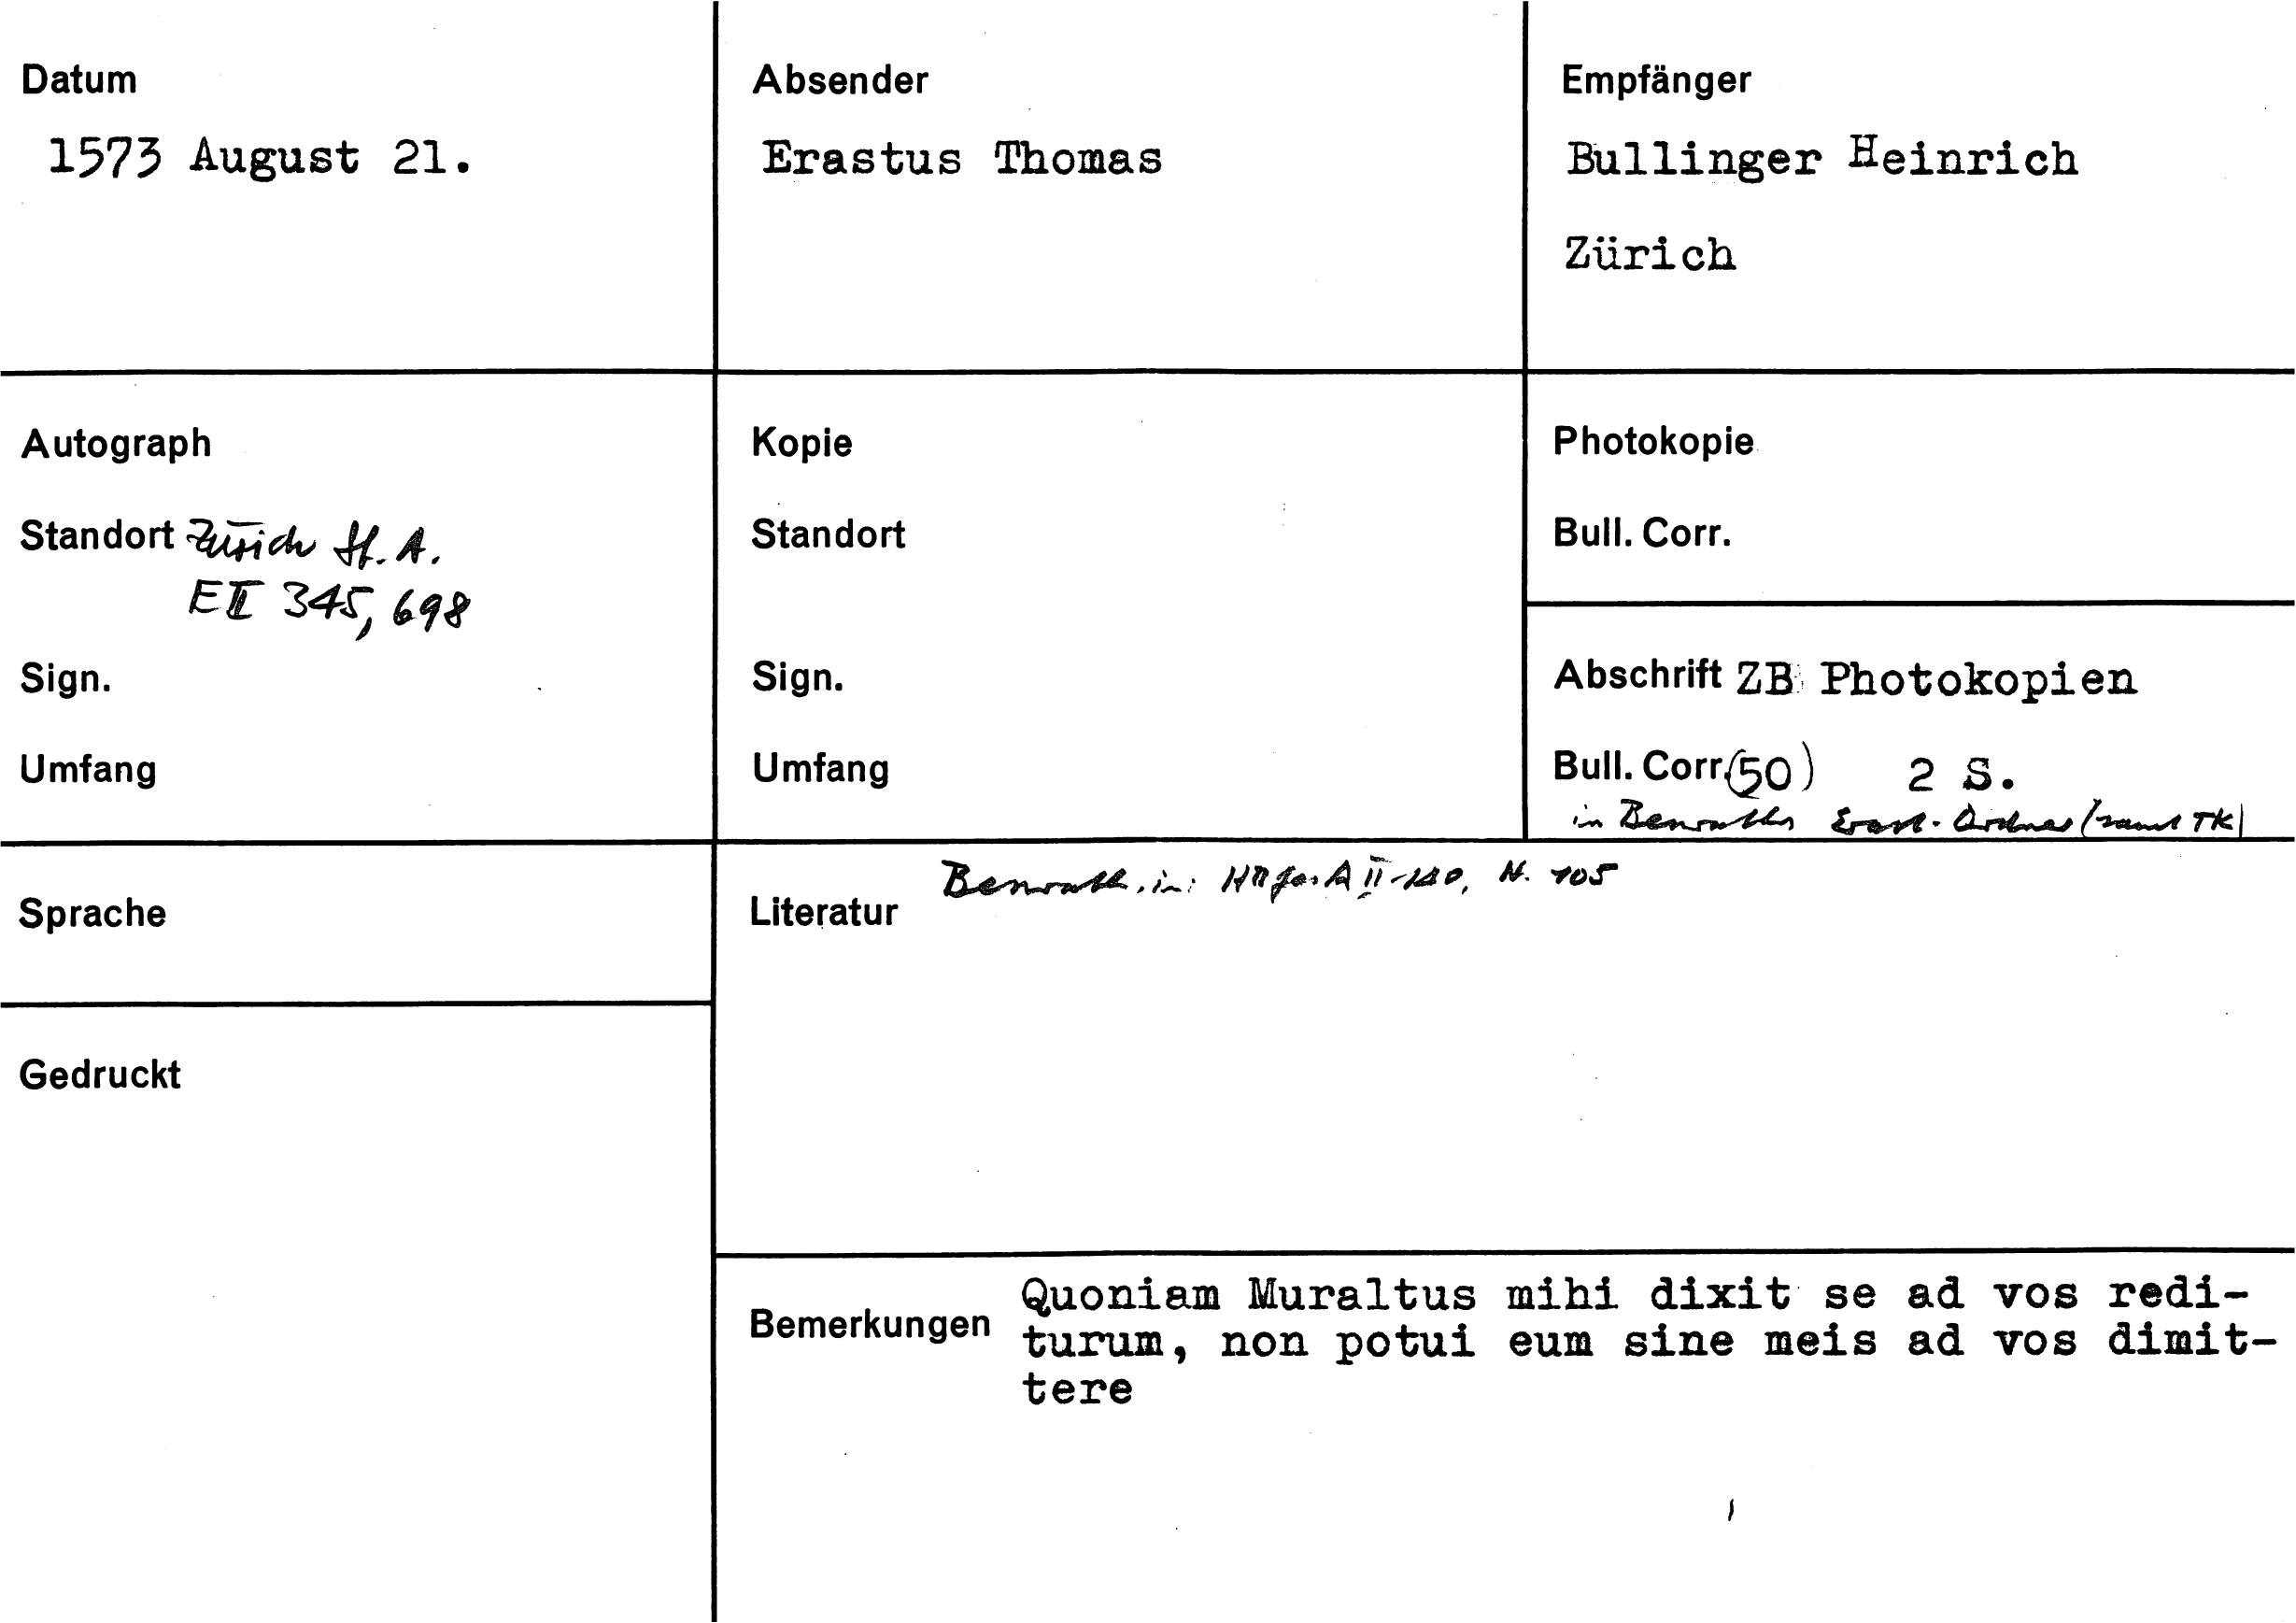 Datum
1573 August 21.
Absender
Erastus Thomas
Empfänger
Bullinger Heinrich
Zürich
Autograph
Standort Zürich St. A.
E II 345, 698
Sign.
Umfang
Kopie
Standort
Sign.
Umfang
Photokopie
Bull. Corr.
Abschrift ZB Photokopien
Bull. Corr. (50) 2 S.
in Benraths Erast-Ordner (samt TK)
Sprache
Gedruckt
Literatur Benrath, in: II N. 105
Bemerkungen Quoniam Muraltus mihi dixit se ad vos redi-
turum, non potui eum sine meis ad vos dimit-
tere